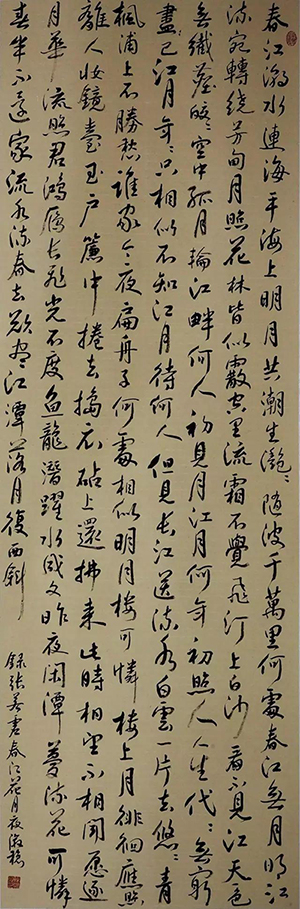 春江潮水連海平海上明月共潮生灩〻隨波千萬里何處春江無月明江
流宛轉繞芳甸月照花林皆似霰空里流霜不覺飛汀上白沙看不見江天一色
無纖塵皎〻空中孤月輪江畔何人初見月江月何年初照人人生代〻無窮
盡已江月年〻只相似不知江月待何人但見長江送流水白雲一片去悠〻青
楓浦上不勝愁誰家今夜扁舟子何處相似明月樓可憐樓上月徘徊應照
離人妝鏡臺玉戶簾中捲去擣衣砧上還拂来此時相望不相聞願逐
月華流照君鴻雁長飛光不度魚龍潛躍水成文昨夜閑潭夢流花可憐
春半不還家流水流春去欲盡江潭落月復西斜
錄張若書春江花月夜